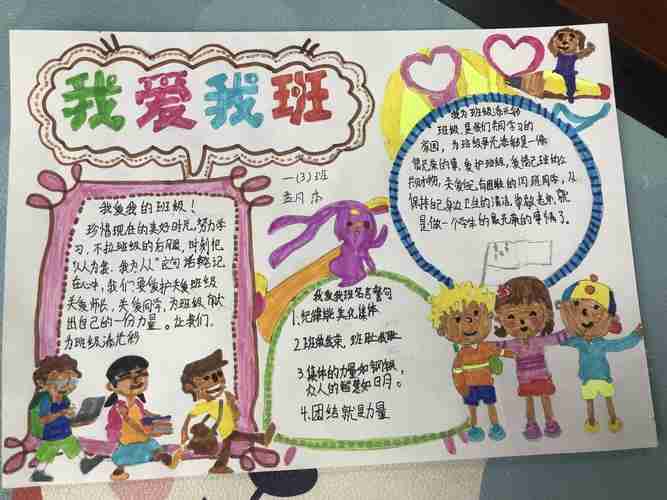 我爱我班
一(3)班
我爱我的班级！
珍惜现在的美好时光,努力学
习，不拉班级的后腿，时刻把
"人人为我，我为人人"这句话熟记
在心中，我们要爱护关爱班级
关爱师长，关爱同学，为班级献
出自己的一份力量。让我们
为班级添光彩
我为班级添光彩
班级，是我们共同学习的
家园，为班级争光添彩是一件
很光荣的事，爱护班级，爱惜己班的公
共财物，关爱
保持好身边卫生的清洁，尊敬老师，就
是做一个学生的最光荣的事情了。
我爱我班名言警句
1.纪律是
2.班荣我荣，班耻我耻
3.集体的力量如钢铁，
众人的智慧如日月。
4.团结就是力量